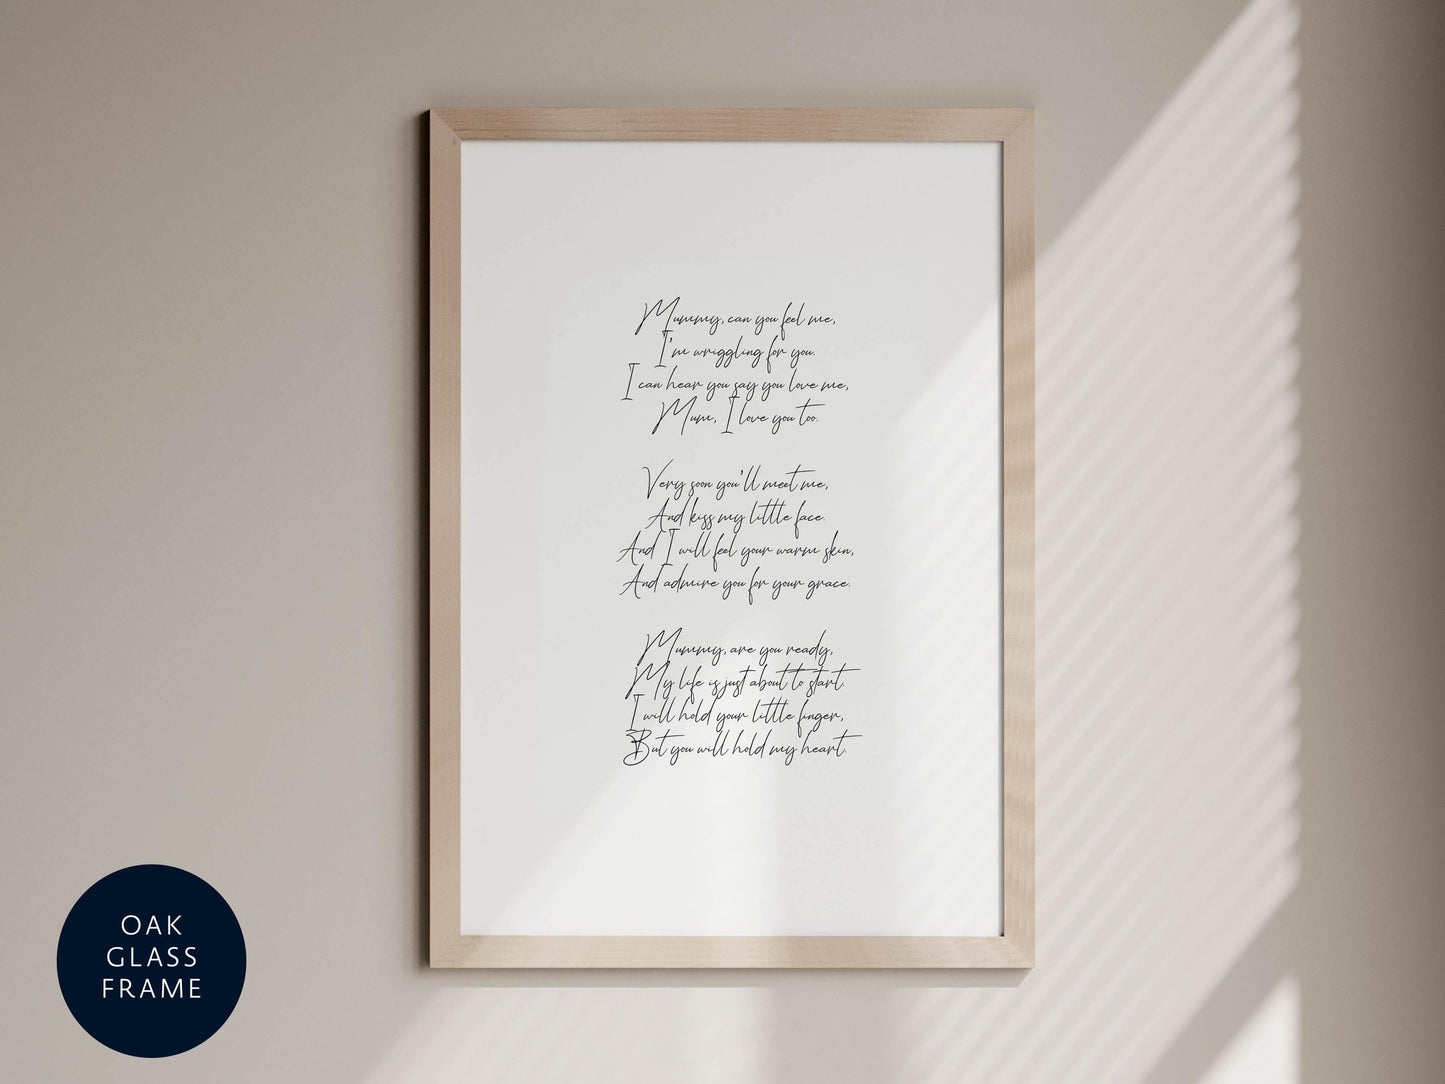 Mummy, can you feel me,
I'm wriggling for you.
I can hear you say you love me,
Mum, I love you too.
Very soon you'll meet me,
And kiss my little face.
And I will feel your warm skin,
And admire you for your grace.
Mummy, are you ready,
My life is just about to start.
I will hold your little finger,
But you will hold my heart.
OAK
GLASS
FRAME